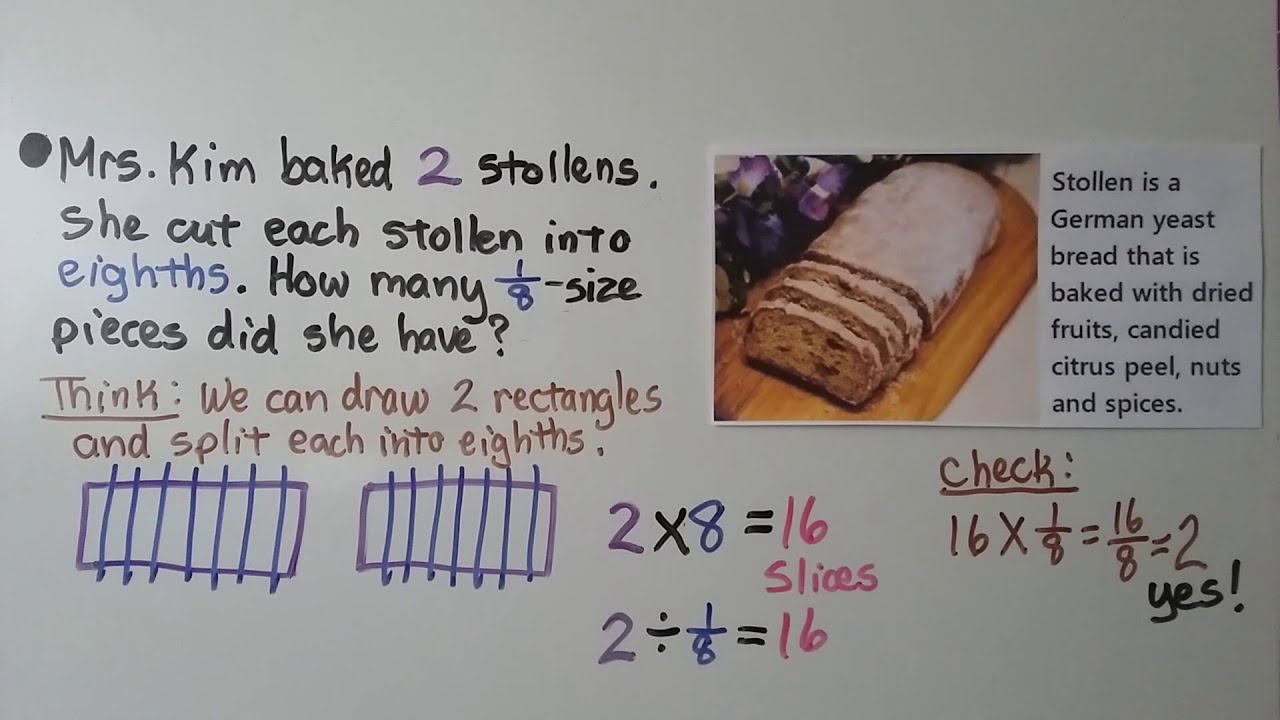 Mrs. Kim baked 2 stollens.
She cut each stollen into
eighths. How many 1/8-size
pieces did she have?
Think: We can draw 2 rectangles
and split each into eighths.
Stollen is a
German yeast
bread that is
baked with dried
fruits, candied
citrus peel, nuts
and spices.
2 x 8 = 16
Slices
2 ÷ 1/8 = 16
Check:
16 X 1/8 = 16/8 = 2
yes!